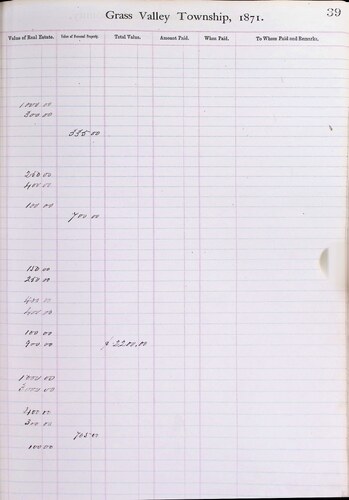 Grass Valley Township, 1871.
39
Value of Real Estate. Value of Personal Property. Total Value. Amount Paid. When Paid. To Whom Paid and Remarks.
1000 00
300 00
335 00
260 00
400 00
100 00
700 00
150 00
250 00
400 00
400 00
100 00
900 00 2200.00
1000 00
2000 00
300 00
705 00
100 00